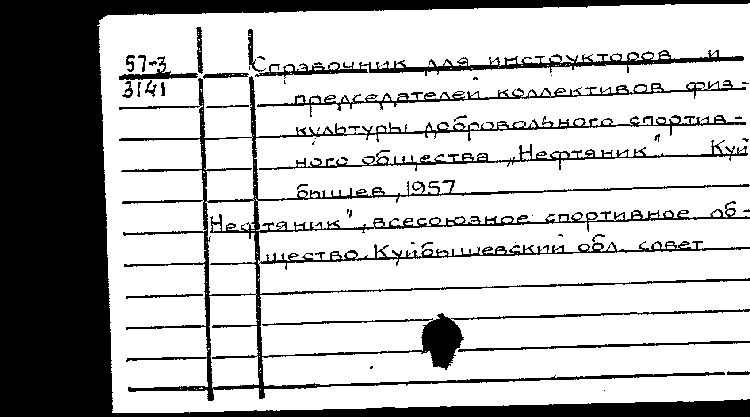 57-3
3141
Справочник для инструкторов и
председателей коллективов физ-
культуры добровольного спортив-
ного общества „Нефтяник". Куй
бышев, 1957
Нефтяник", всесоюзное спортивное об-
щество. Куйбышевский обл. совет